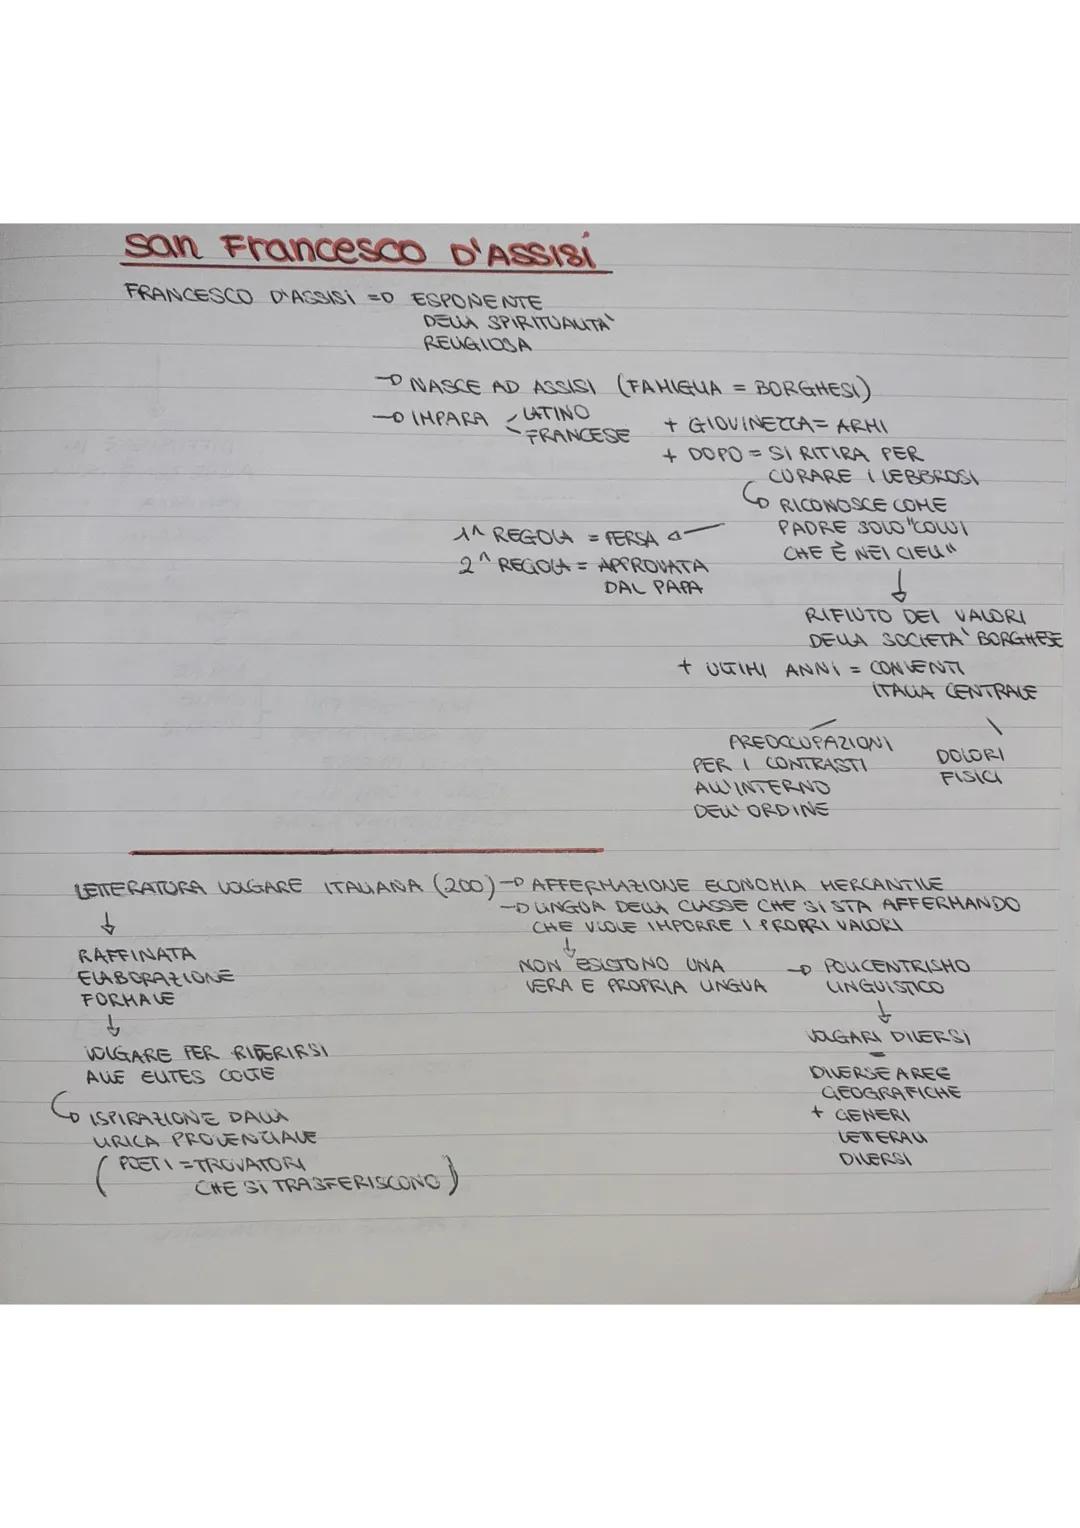 San Francesco D'ASSISI
FRANCESCO D'ASSISI => ESPONENTE
DELLA SPIRITUALITA'
RELIGIOSA
→ NASCE AD ASSISI (FAMIGLIA = BORGHESI)
→ IMPARA < LATINO
FRANCESE
+ GIOVINEZZA = ARMI
+ DOPO = SI RITIRA PER
CURARE I LEBBROSI
↳ RICONOSCE COME
PADRE SOLO "COLUI
CHE È NEI CIELI"
1^ REGOLA = PERSA ←
2^ REGOLA = APPROVATA
DAL PAPA
↓
RIFIUTO DEI VALORI
DELLA SOCIETA' BORGHESE
+ ULTIMI ANNI = CONVENTI
ITALIA CENTRALE
PREOCCUPAZIONI
PER I CONTRASTI
ALL'INTERNO
DELL'ORDINE
DOLORI
FISICI
LETTERATURA VOLGARE ITALIANA (200) → AFFERMAZIONE ECONOMIA MERCANTILE
→ LINGUA DELLA CLASSE CHE SI STA AFFERMANDO
CHE VUOLE IMPORRE I PROPRI VALORI
↓
RAFFINATA
ELABORAZIONE
FORMALE
↓
VOLGARE PER RIFERIRSI
ALLE ELITES COLTE
↳ ISPIRAZIONE DALLA
LIRICA PROVENZIALE
( POETI = TROVATORI
CHE SI TRASFERISCONO )
↓
NON ESISTONO UNA
VERA E PROPRIA LINGUA
→ POLICENTRISMO
LINGUISTICO
↓
VOLGARI DIVERSI
=
DIVERSE AREE
GEOGRAFICHE
+ GENERI
LETTERALI
DIVERSI